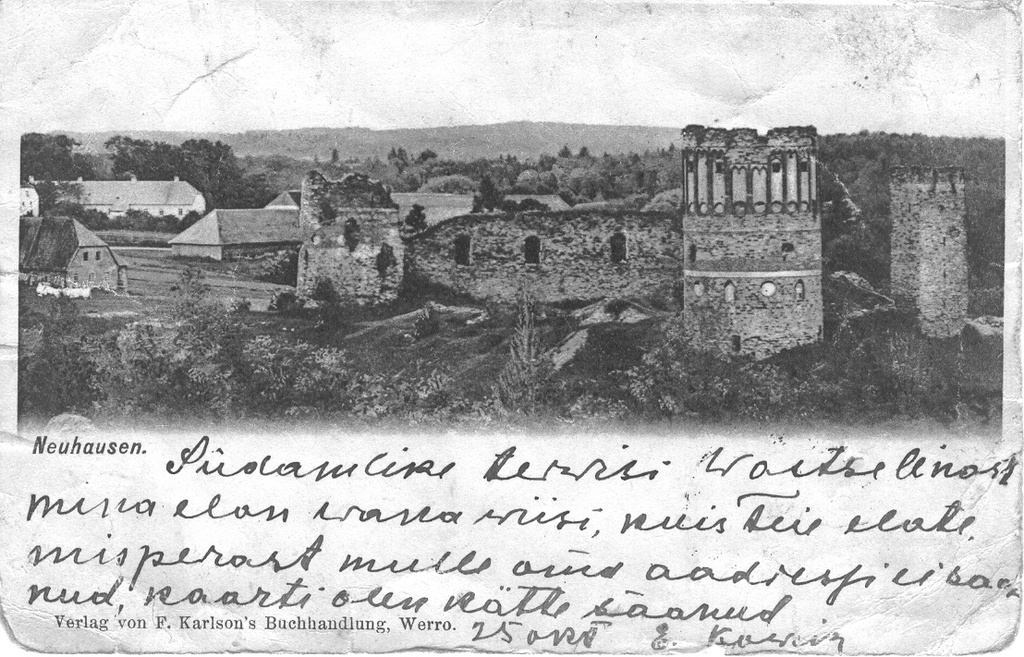 Neuhausen.
Südamlike terwisi Wastselinast
mina elan wana wiisi, kuis Teie elate,
misperast mulle oma aadressi ei saa-
nud, kaarti olen kätte saanud
Verlag von F. Karlson's Buchhandlung, Werro.
25 okt E.